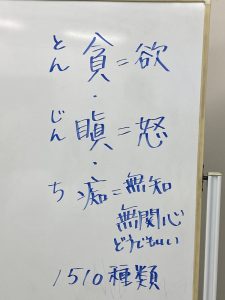 とん 貪=欲
・
じん 瞋=怒
・
ち 痴=無知
無関心
どうでもいい
1510種類